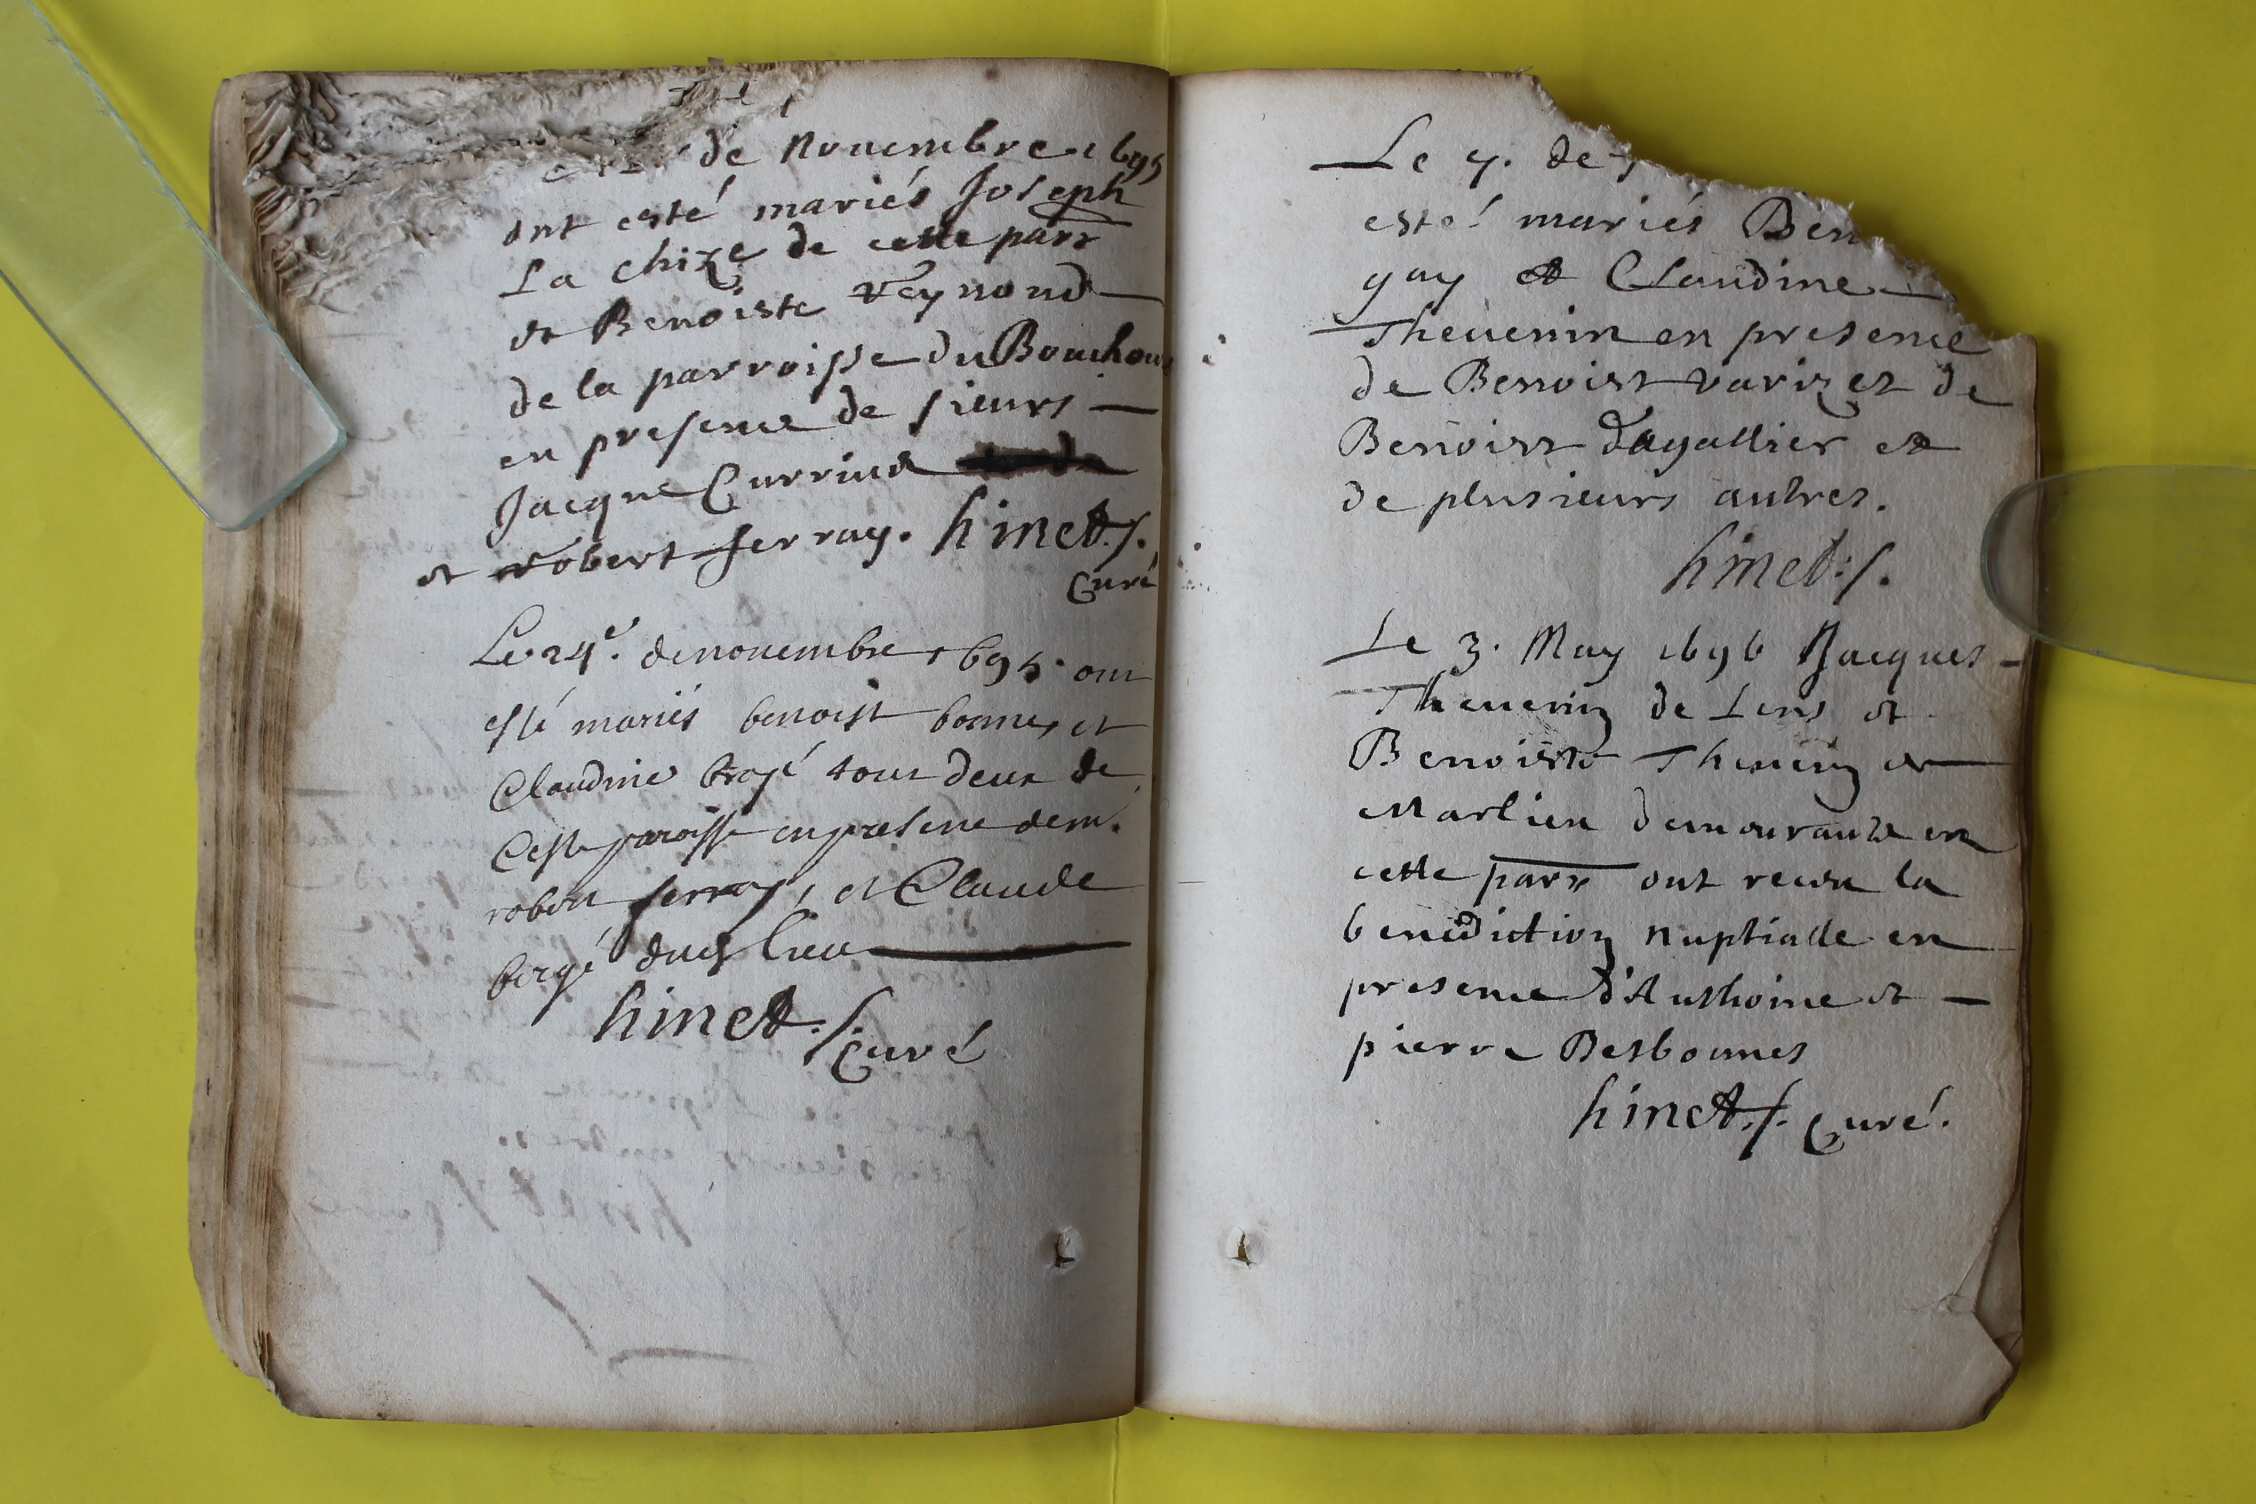 de Nouembre 1695
ont esté mariés Joseph
La Chize de cette parr
et Benoiste Reynond
de la parroisse du Bouchous
en presence de sieurs
Jacque Curriud
et robert ferray. hinet. s.
Curé
Le 24e. de nouembre 1695. ont
esté mariés benoist bonnes et
Claudine bergé tous deux de
Ceste paroisse en presence de m.
robert ferray, et Claude
bergé dud lieu
hinet. s.
Curé
Le 7. de
esté mariés Ben
gay et Claudine
Theuenin en presence
de Benoist varizet de
Benoist dagallier et
de plusieurs autres.
hinet: s.
Le 3. May 1696 Jacques
Theuenin de Lens et
Benoiste Theuenin de
Marlieu demourants en
cette parr ont receu la
benediction nuptialle en
presence d'Anthoine et
pierre Desbonnes
hinet. s. Curé.